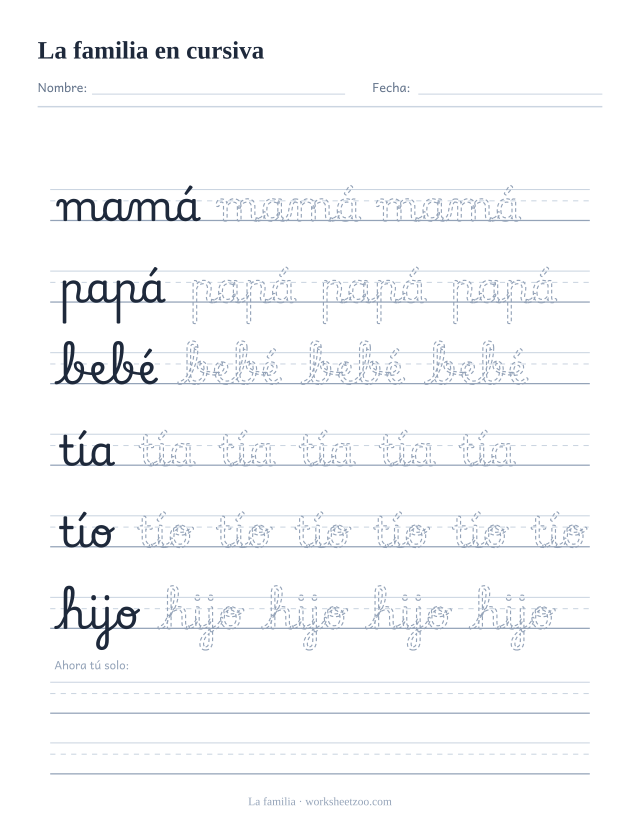 La familia en cursiva
Nombre: Fecha:
mamá mamá mamá
papá papá papá papá
bebé bebé bebé bebé
tía tía tía tía tía tía
tío tío tío tío tío tío tío
hijo hijo hijo hijo hijo
Ahora tú solo:
La familia · worksheetzoo.com